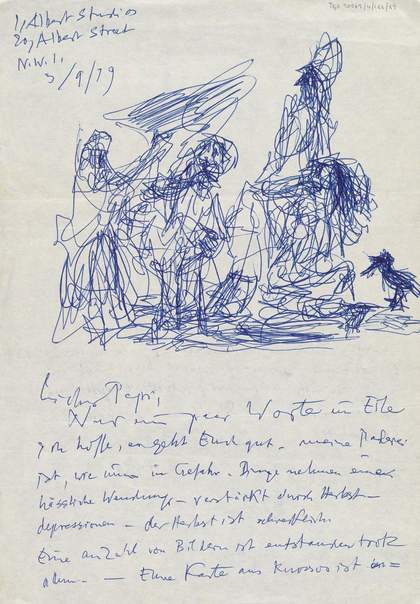 1, Albert Studios
20, Albert Street
N.W.1.
3/9/79
Lieber Papi,
Nur ein paar Worte in Eile
Ich hoffe, es geht Euch gut – meine Malerei
ist, wie immer in Gefahr – Dinge nehmen einen
hässliche Wendung – verstärkt durch Herbst–
depressionen – der Herbst ist schrecklich.
Eine anzahl von Bildern ist entstanden trotz
allem. — Eine Karte aus Knossos ist